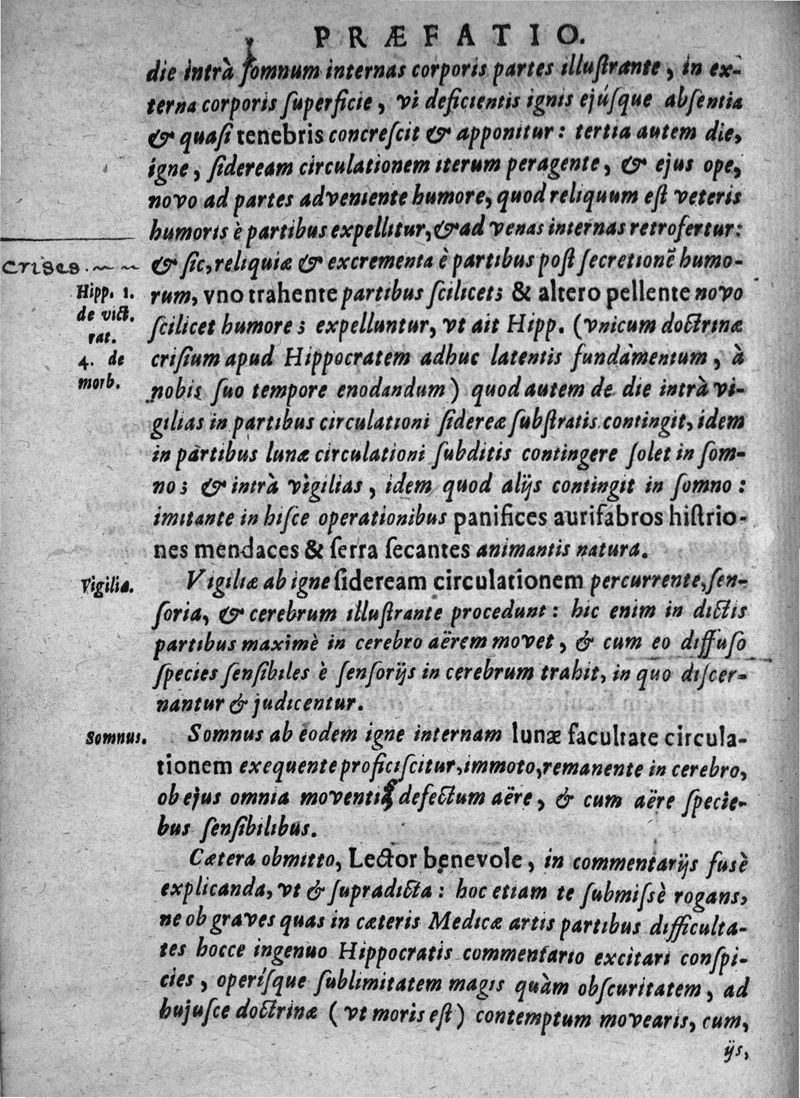 PRÆFATIO.
die intrà ſomnum internas corporis partes illuſtrante, in ex-
terna corporis ſuperficie, vi deficientis ignis ejúſque abſentia
& quaſi tenebris concreſcit & apponitur: tertia autem die,
igne, ſideream circulationem iterum peragente, & ejus ope,
novo ad partes adveniente humore, quod reliquum eſt veteris
humoris è partibus expellitur, & ad venas internas retrofertur:
Crises.
& ſic, reliquiæ & excrementa è partibus poſt ſecretionē humo-
Hipp. 1.
de vict.
rat.
4. de
morb.
rum, vno trahente partibus ſcilicet; & altero pellente novo
ſcilicet humore; expelluntur, vt ait Hipp. (vnicum doctrinæ
criſium apud Hippocratem adhuc latentis fundamentum, à
nobis ſuo tempore enodandum) quod autem de die intrà vi-
gilias in partibus circulationi ſidereæ ſubſtratis contingit, idem
in partibus lunæ circulationi ſubditis contingere ſolet in ſom-
no; & intrà vigilias, idem quod alijs contingit in ſomno:
imitante in hiſce operationibus panifices aurifabros hiſtrio-
nes mendaces & ſerra ſecantes animantis natura.
Vigilia.
Vigiliæ ab igne ſideream circulationem percurrente, ſen-
ſoria, & cerebrum illuſtrante procedunt: hic enim in dictis
partibus maximè in cerebro aërem movet, & cum eo diffuſo
ſpecies ſenſibiles è ſenſorijs in cerebrum trahit, in quo diſcer-
nantur & judicentur.
Somnus.
Somnus ab eodem igne internam lunæ facultate circula-
tionem exequente proficiſcitur, immoto, remanente in cerebro,
ob ejus omnia moventis defectum aëre, & cum aëre ſpecie-
bus ſenſibilibus.
Cætera obmitto, Lector benevole, in commentarijs fusè
explicanda, vt & ſupradicta: hoc etiam te ſubmiſsè rogans,
ne ob graves quas in cæteris Medicæ artis partibus difficulta-
tes hocce ingenuo Hippocratis commentario excitari conſpi-
cies, operíſque ſublimitatem magis quàm obſcuritatem, ad
hujuſce doctrinæ (vt moris eſt) contemptum movearis, cum,
ijs,